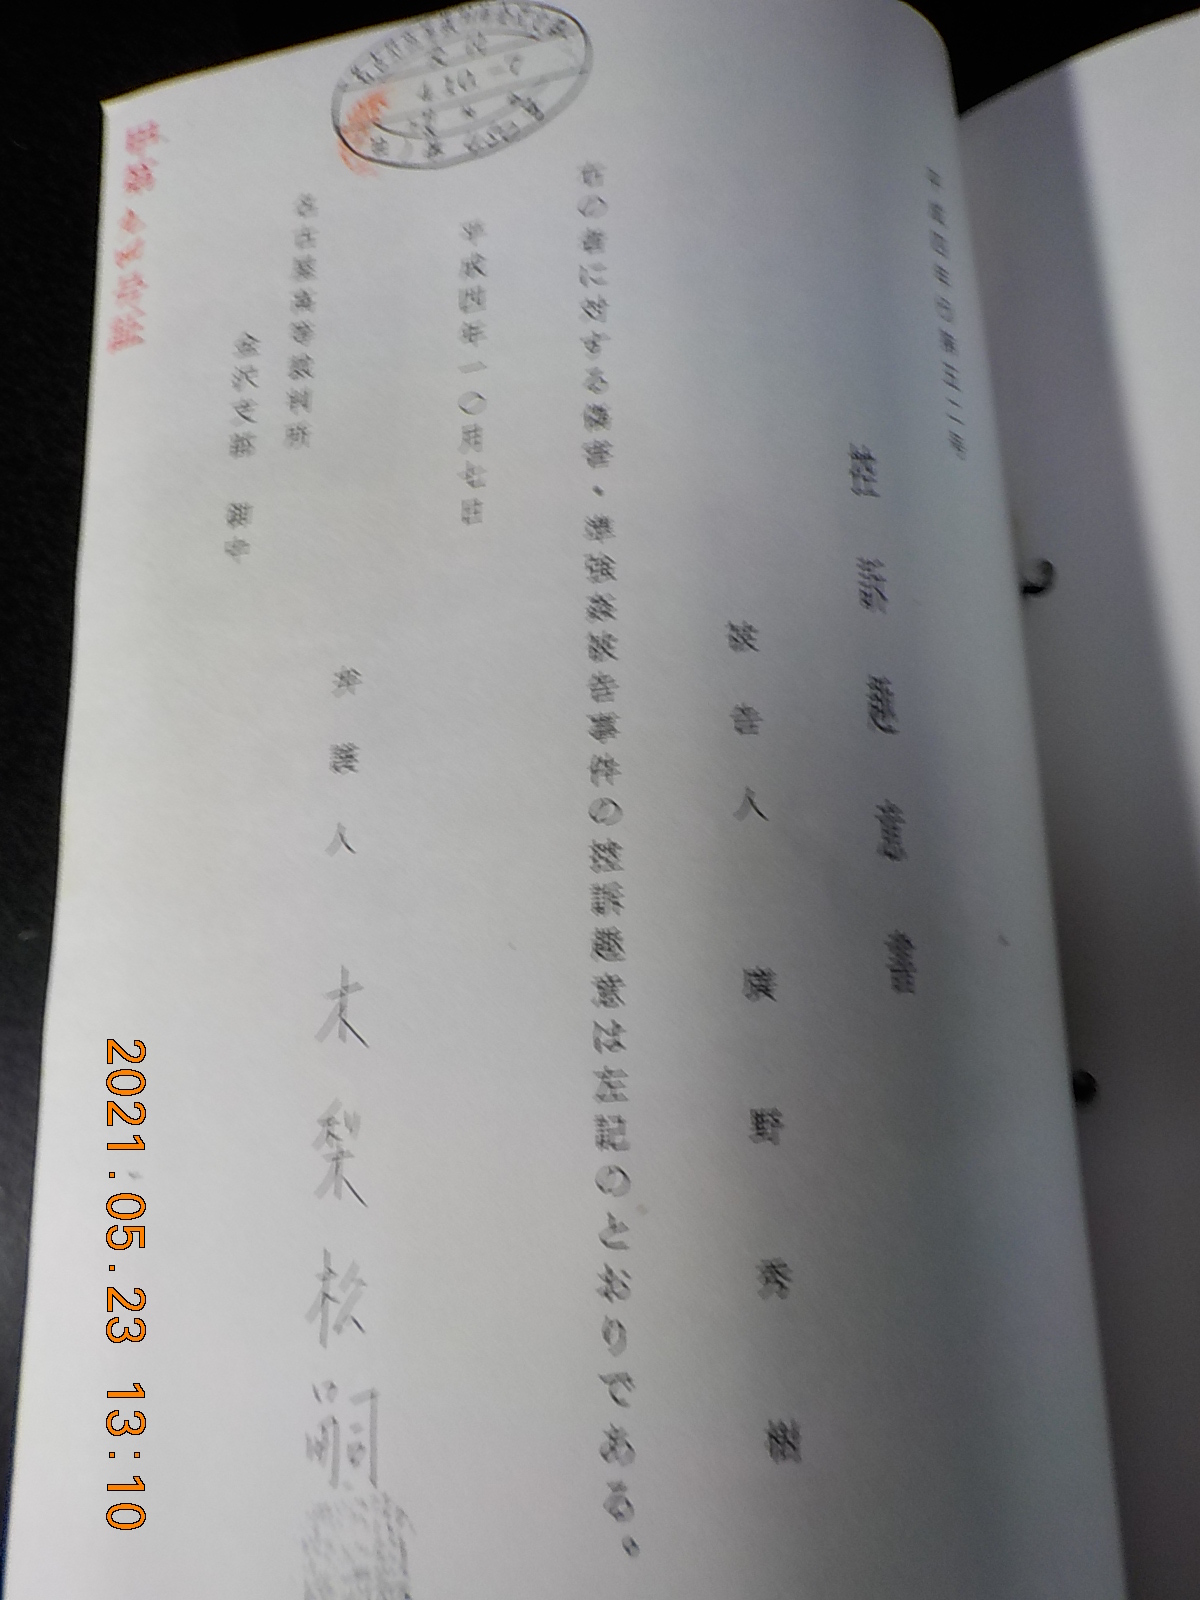 平成四年(う)第五二号
控訴趣意書
被告人 廣野秀樹
右の者に対する傷害・準強姦被告事件の控訴趣意は左記のとおりである。
平成四年一〇月七日
弁護人 木梨松嗣
名古屋高等裁判所
金沢支部 御中
2021.05.23 13:10